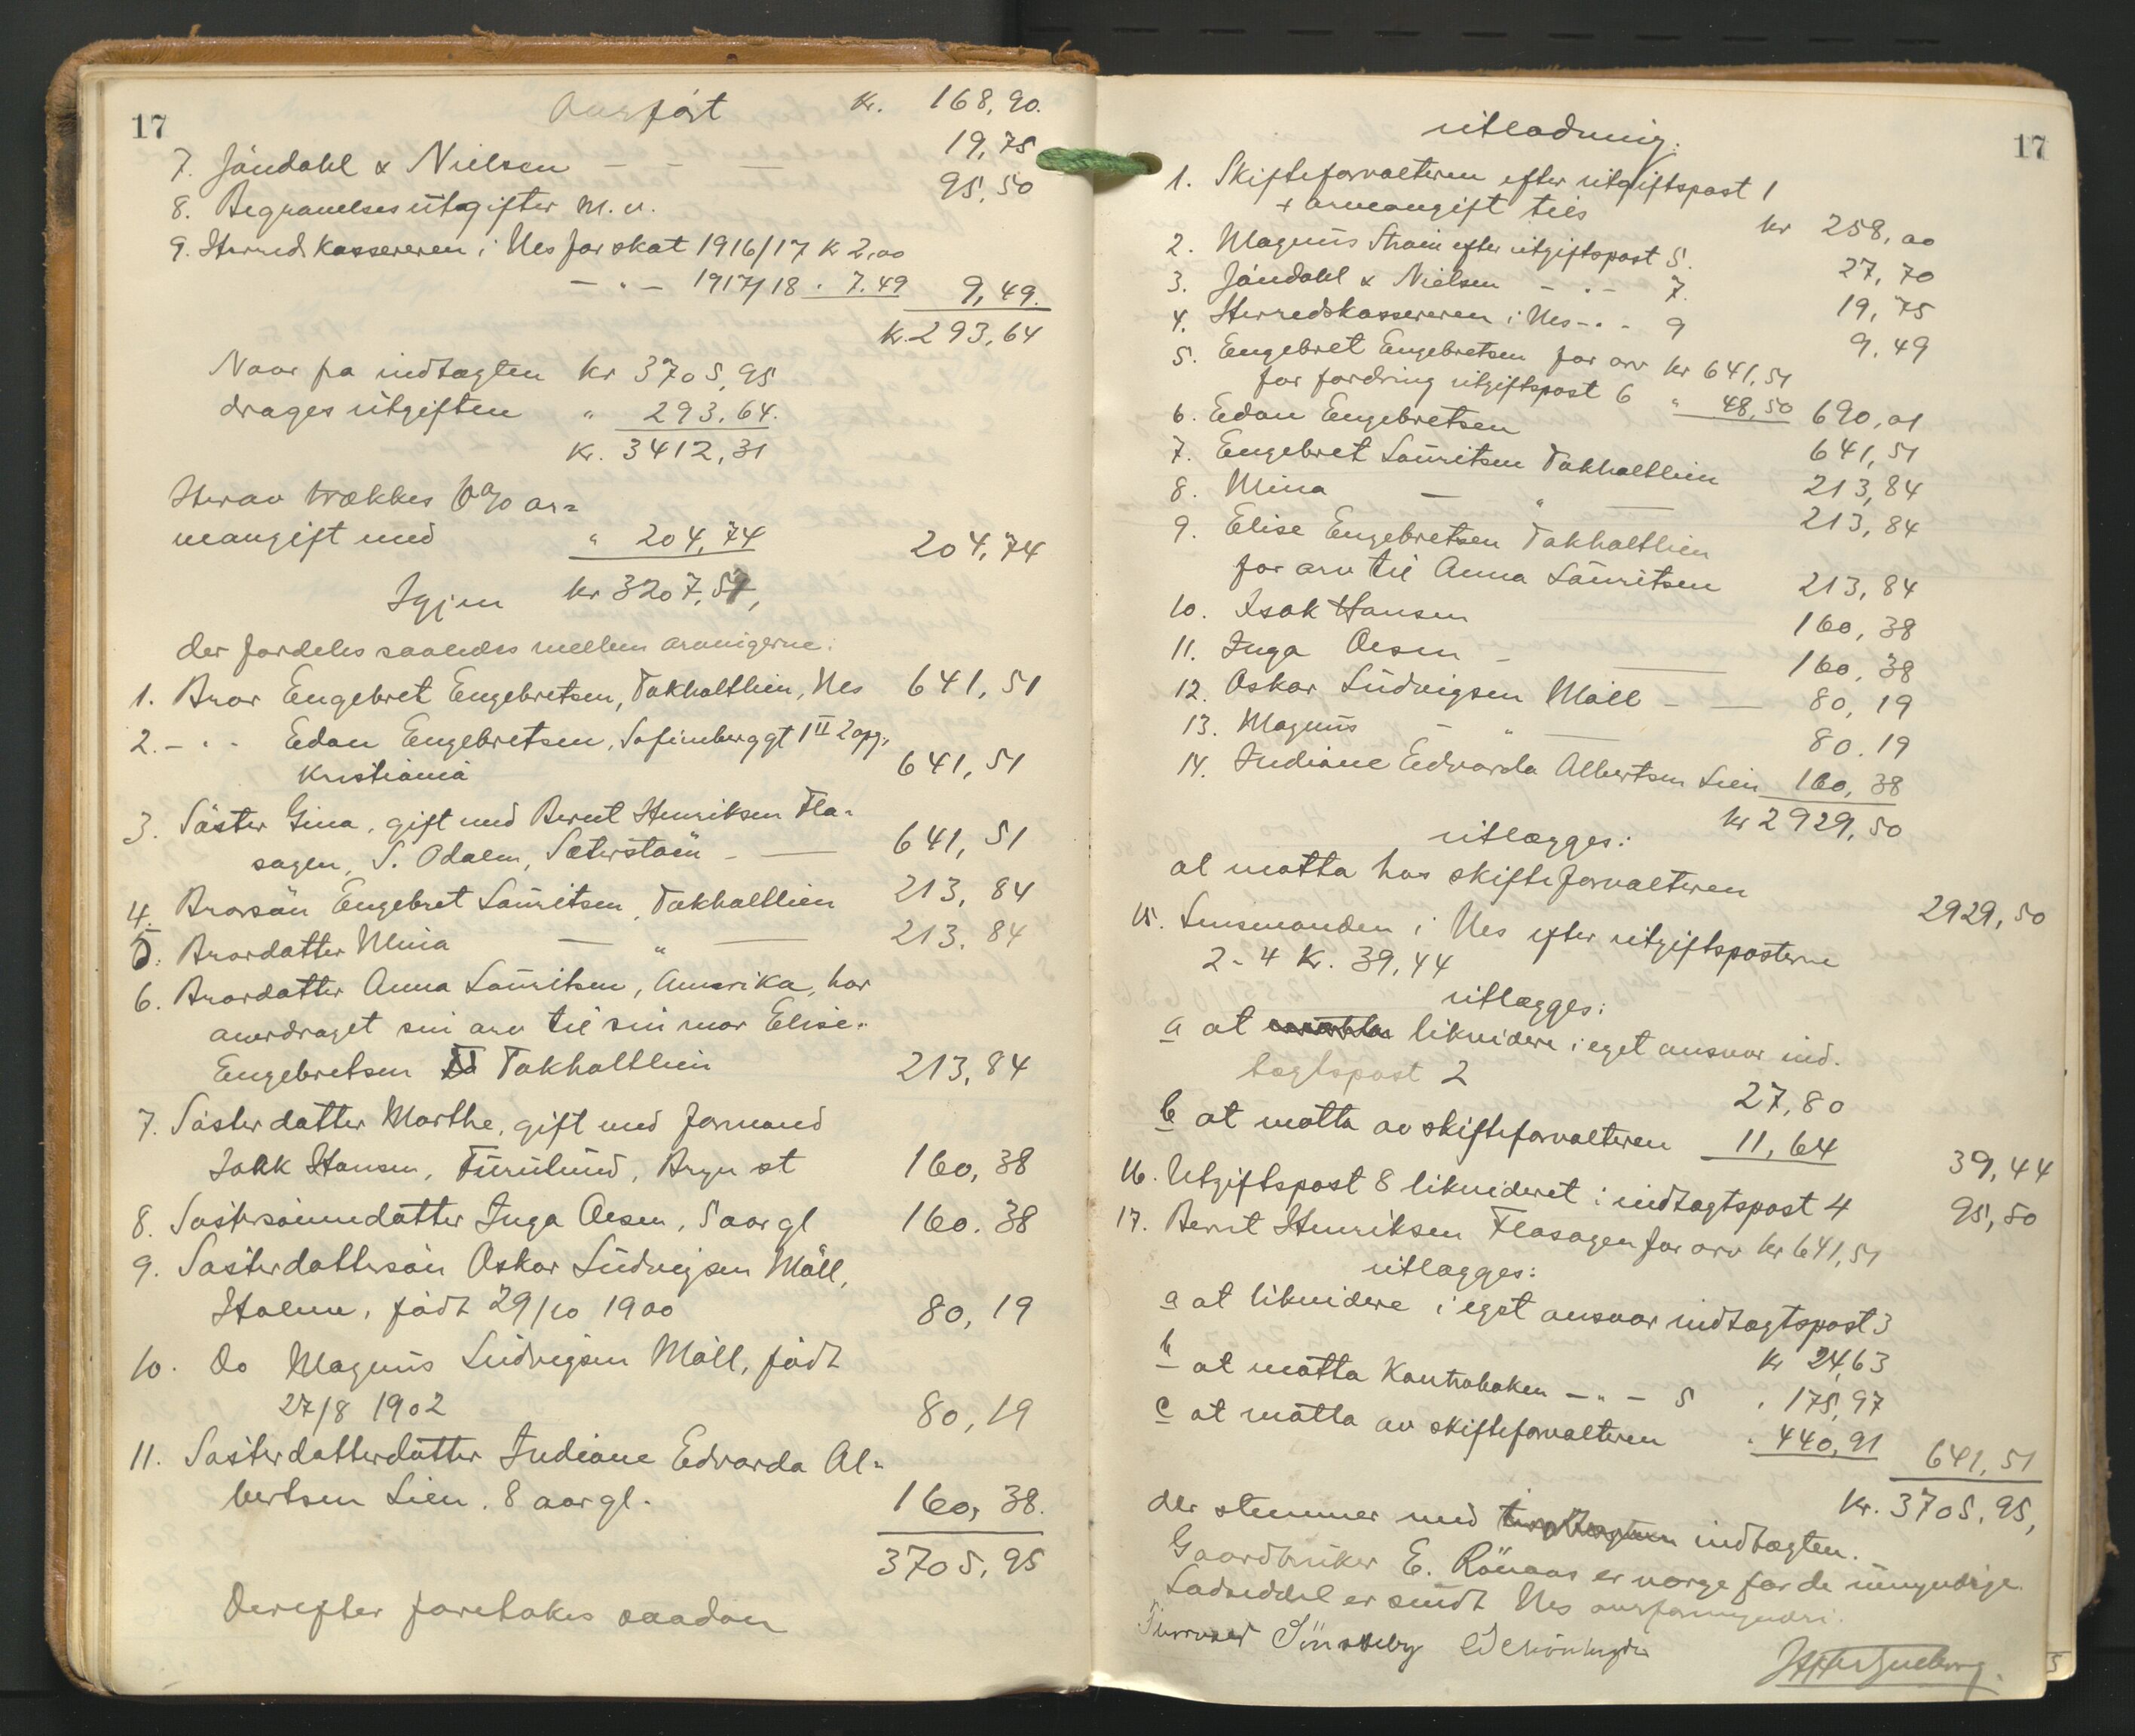 17
Overført kr. 168,90.
7. Jöndahl & Nielsen — — — 19,75
8. Begravelsesutgifter m.v. 95,50
9. Herredskassereren i Nes for skat 1916/17 k 2,00
— . — 1917/18 . 7.49 9,49.
kr. 293,64
Naar fra indtægten kr 3705,95
drages utgiften " 293.64.
kr. 3412,31
Herav trækkes 6% ar=
veavgift med " 204,74 204,74
Igjen kr 3207,57,
der fordeles saaledes mellem arvingerne:
1. Bror Engebret Engebretsen, Takholtlien, Nes 641,51
2. — . - Edan Engebretsen, Sofienberggt 1 II 2 opg,
Kristiania 641,51
3. Söster Gina, gift med Bernt Henriksen Fla-
sagen, S. Odalen, Sæterstöen — 641,51
4. Brorsön Engebret Lauritsen, Takholtlien 213,84
5. Brordatter Mina — " — 213.84
6. Brordatter Anna Lauritsen, Amerika, har
overdraget sin arv til sin mor Elise
Engebretsen Takholtlien 213,84
7. Sösterdatter Marthe, gift med formand
Isak Hansen, Furulund, Bryn st 160,38
8. Söstersönnedatter Inga Oesen, 5 aar gl 160.38
9. Sösterdattersön Oskar Ludvigsen Moll,
Holmen, födt 29/10 1900 80,19
10. Do Magnus Ludvigsen Moll, födt
27/8 1902 80,19
11. Sösterdatterdatter Indiane Edvarda Al-
bertsen Lien. 8 aar gl. 160,38.
3705,95
Derefter foretokes saadan
17
utlodning:
1. Skifteforvalteren efter utgiftspost 1
+ arveavgift tils kr 258,00
2. Magnus Strøm efter utgiftspost 5. 27,70
3. Jöndahl & Nielsen — . — 7. 19,75
4. Herredskassereren i Nes — . - 9 9,49
5. Engebret Engebretsen for arv kr 641,51
for fordring utgiftspost 6 " 48,50 690,01
6. Edan Engebretsen 641,51
7. Engebret Lauritsen Takholtlien 213,84
8. Mina — " — 213,84
9. Elise Engebretsen Takholtlien
for arv til Anna Lauritsen 213,84
10. Isak Hansen 160,38
11. Inga Oesen — — 160,38
12. Oskar Ludvigsen Moll — — 80,19
13. Magnus — " — 80.19
14. Indiane Edvarda Albertsen Lien 160,38
kr 2929,50
utlægges:
at motta hos skifteforvalteren 2929,50
15. Lensmanden i Nes efter utgiftsposterne
2-4 kr. 39,44
utlægges:
a at likvidere i eget ansvar ind-
tægtspost 2 27,80
b at motta av skifteforvalteren 11,64 39,44
16. Utgiftspost 8 likvideret i indtægtspost 4 95,50
17. Bernt Henriksen Flasagen for arv kr 641,51
utlægges:
a at likvidere i eget ansvar indtægtspost 3
kr 24,63
b at motta Kontraboken — " — 5 . 175,97
c at motta av skifteforvalteren . 440,91 641,51
kr. 3705,95,
der stemmer med indtægten.
Gaardbruker E. Rönaas er værge for de umyndige.
Lodseddel er sendt Nes overformynderi.